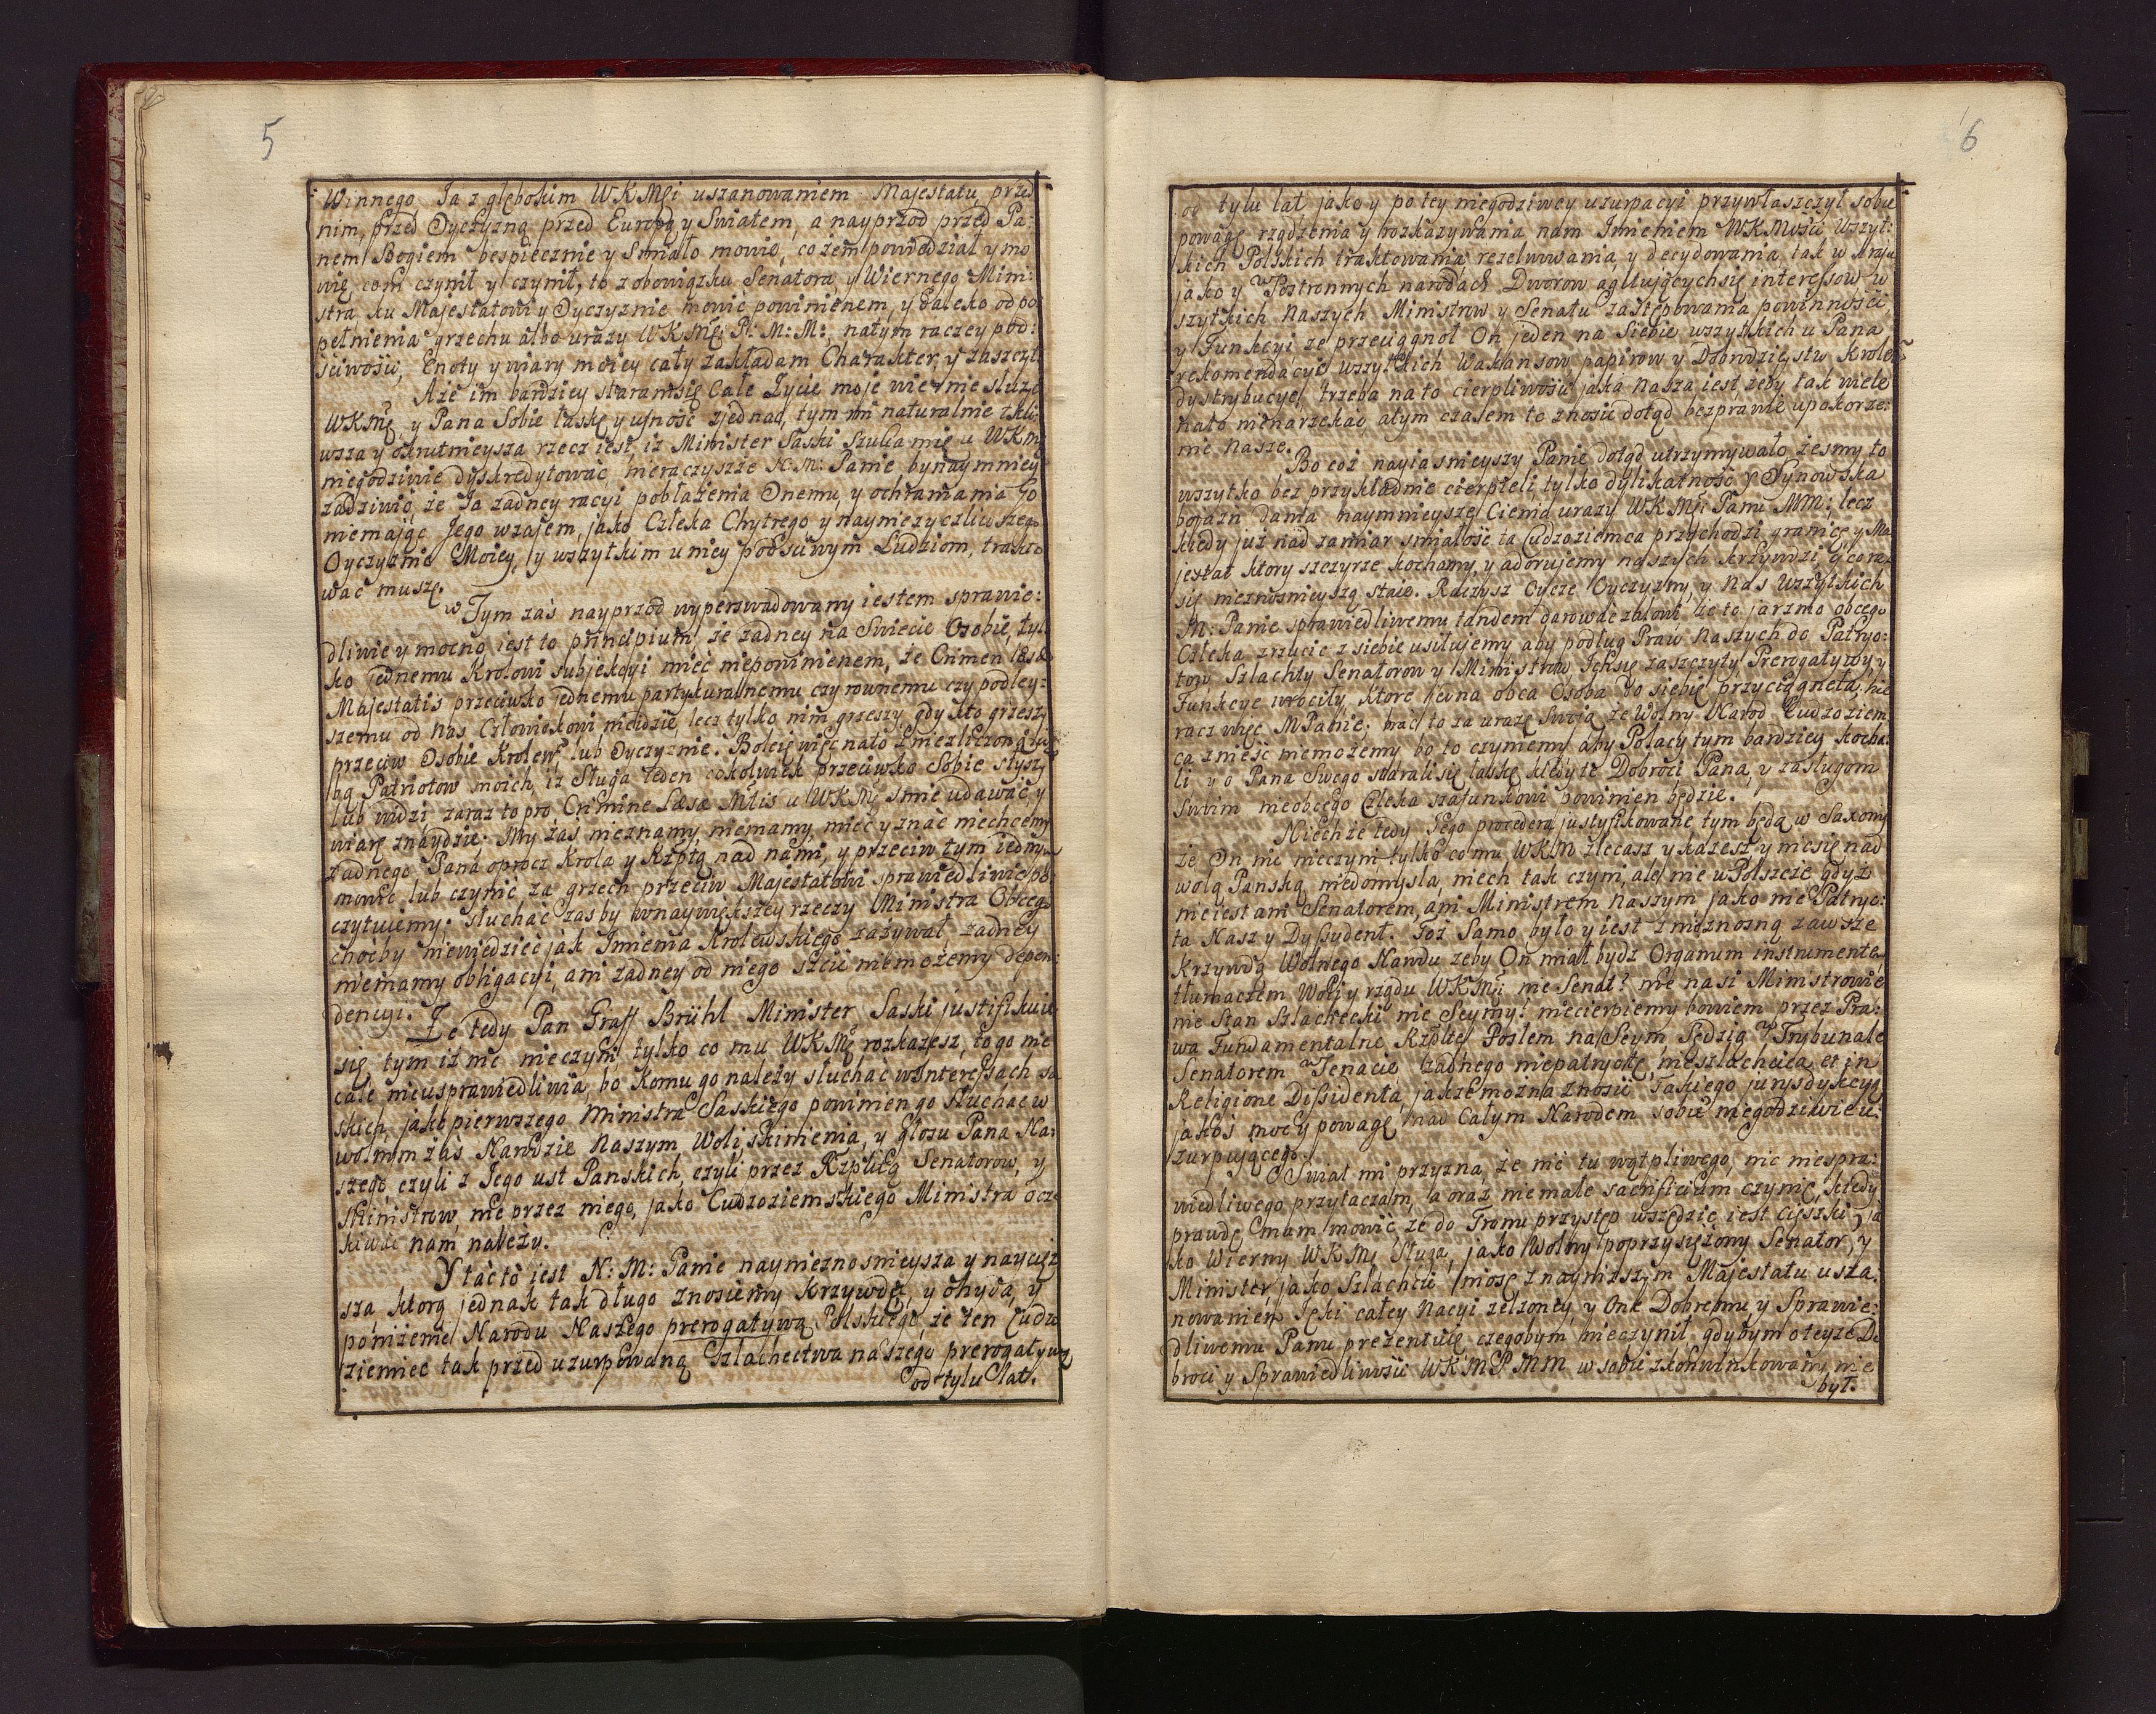 5
Winnego Ja z głębokim WKMći uszanowaniem Majestatu, przed
nim, przed Oyczyzną przed Europą y Swiatem, a nayprzod przed Pa:
nem Bogiem bespiecznie y Smiało mowię, co żem powiedział y mo
wię com czynił y czynił, to z obowiązku Senatora y Wiernego Mini:
stra ku Majestatowi y Oyczyznie mowić powinienem, y daleko od po
pełnienia grzechu albo urazy WKMći P: M: M:, na tym raczey pod:
ściwości, Cnoty y wiary moiey cały zakładam Charakter, y zaszczyt.
Aże im bardziey staram się Całe Życie moje wiernie służąc
WKMći y Pana Sobie łaskę y ufność zjednać, tym mi naturalnie
wsza y okrutnieysza rzecz iest, iż Minister Saski Szuka mię u WKMći
niegodziwie dyskredytować, nieraczyszże N: M: Panie bynaymniey
zadziwić, że Ja żadney racyi pobłażenia Onemu, y ochraniania Go
niemając Jego wzajem, jako Człeka Chytrego y nayniezyczliwszego
Oyczyznie Moiey, y wszytkim w niey poćściwym Ludziom, trakto
wać muszę.
w Tym zaś nayprzod wyperswadowany iestem sprawie:
dliwie y mocno iest to principium, że żadney na Swiecie Osobie, tyl
ko jednemu Krolowi subjekcyi mieć niepowinienem, że Crimen læsæ
Majestatis przeciwko jednemu partykuralnemu czy rownemu czy podley:
szemu od nas Człowiekowi nieidzie, lecz tylko nim grzeszy, gdy kto grzeszy
przeciw Osobie Krolewć lub Oyczyznie. Boleię więc nato z niezliczoną
bą Patriotow moich, iż Sługa ieden cokolwiek przeciwko Sobie słyszy
lub widzi, zaraz to pro Crimine Læsæ Mtis u WKMći smie udawać y
wiarę znaydzie. My zas nieznamy, niemamy, mieć y znać niechcemy
żadnego Pana oprocz Krola y Rzptą nad nami, y przeciw tym iedny
mowić lub czynić za grzech przeciw Majestatowi sprawiedliwie po
czytuiemy: słuchać zasby w naywiększey rzeczy Ministra Obcego
choćby niewiedzieć jak Imienia Krolewskiego zażywał żadney
niemamy obligacyi, ani żadney od niego sćić niemożemy depen:
dencyi.
Że tedy Pan Graff Brühl Minister Saski justifikuie
się, tym iż nic nieczyni, tylko co mu WKMć rozkażesz, to go nie
cale nieusprawiedliwia, bo Komu go należy słuchać w Interessach Sa
skich, jako pierwszego Ministra Saskiego powinien go słuchać w
wolnym zaś Narodzie Naszym, Woli, skinienia, y głosu Pana Na:
szego, czyli z Jego ust Panskich, czyli przez Rzplitę Senatorow, y
Ministrow, nie przez niego, jako Cudzoziemskiego Ministra ocze
kiwać nam należy.
Y tać to jest N: M: Panie naynieznosnieysza y naycięż
sza, ktorą jednak tak długo znosiemy Krzywdę, y ohydą, y
poniżenie Narodu Naszego prerogatywą Polskiego, że ten Cudzo
ziemiec tak przed uzurpowaną Szlachectwa naszego prerogatywą
od tylu lat.
6
od tylu lat jako y po tey niegodziwey uzurpacyi przywłaszczył sobie
powagę rządzenia y rozkazywania nam Imieniem WKMości Wszyt:
kich Polskich traktowania, rezelwowania, y decydowania, tak w kraju
jako y w Postronnych narodach Dworow agituiących się interessow w
szytkich Naszych Ministrow y Senatu zastępowania powinności,
y Funkcyi że przeciągnoł On jeden na Siebie wszytkich u Pana
rekomendacyi wszytkich Wakansow papirow y Dobrodzieystw Krolewć
dystrybucyę, trzeba na to cierpliwości jaka Nasza iest, żeby tak wiele
nato nienarzekać, a tym czasem to znosić dotąd bezprawie upokorze:
nie Nasze.
Bo coż nayiasnieyszy Panie dotąd utrzymywało, żesmy to
wszytko bez przykładnie cierpieli, tylko dylikatność y Synowska
bojazn dania naymnieyszę Cienia urazy WKMći Panu MM: lecz
kiedy już nad zamiar smiałość ta Cudzoziemca przychodzi granicę, y Ma
jestat ktory szczyrze kochamy, y adorujemy naszych krzywdzi,
się nieznosnieyszą staie. Raczysz Oycze Oyczyzny, y Nas Wszytkich
M: Panie sprawiedliwemu tandem darować żalowi że to jarzmo obcego
Człeka zrzucić z siebie usiłujemy aby podług Praw Naszych do Patryo:
tow Szlachty Senatorow y Ministrow, Ichsię zaszczyty, Prerogatywy, y
Funkcye wrociły, ktore jedna obca Osoba do siebie przyciągneła, nie
racz więc MPanie: brać to za urazę Swoją że Wolny Narod Cudzoziem
ca znieść niemożemy, bo to czyniemy aby Polacy tym bardziey kocha:
li y o Pana Swego starali się łaskę, kiedy ie Dobroci Pana, y zasługom
Swoim nieobcego Człeka szafunkowi powinien będzie.
Niechże tedy Jego procedera justyfikowane tym będą w Saxonij
że On nic nieczyni tylko co mu WKM zlecasz y każesz y nic się nad
wolą Panską niedomysla, niech tak czyni, ale nie w Polszcze gdyż
nieiest ani Senatorem, ani Ministrem Naszym jako nie Patryo:
ta Nasz y Dyssydent. Toż Samo było y iest z nieznosną zawsze
Krzywdą Wolnego Narodu zeby On miał bydz Organum instrumentem
tłumaczem Woli y rządu WKMći nie Senat? nie nasi Ministrowie
nie Stan Szlachecki nie Seymy? niecierpiemy bowiem przez Pra:
wa Fundamentalne Rzpltey Posłem na Seym Sędzią w Trybunale
Senatorem w Senacie żadnego niepatryotę, nieszlachcica et in
Religione Dissidenta, jakże można znosić Takiego jurysdykcyą
jakoś moc y powagę nad Całym Narodem sobie niegodziwie u:
zurpującego.
Swiat mi przyzna, że nic tu wątpliwego, nic niespra:
wiedliwego przytaczam, a oraz niemałe sacrificium czynię, kiedy
prawdę mam mowić że do Tronu przystęp wszędzie iest Cięszki, ja
ko Wierny WKMći Sługa, jako Wolny poprzysiężony Senator, y
Minister, jako Szlachcic, niosę z naynizszym Majestatu usza:
nowaniem Ięki całey Nacyi zelżoney, y One Dobremu, y Sprawie:
dliwemu Panu prezentuię czegobym nieczynił, gdybym o teyże Do
broci y Sprawiedliwości WKMPMM w sobie zkonwinkowany nie
był.